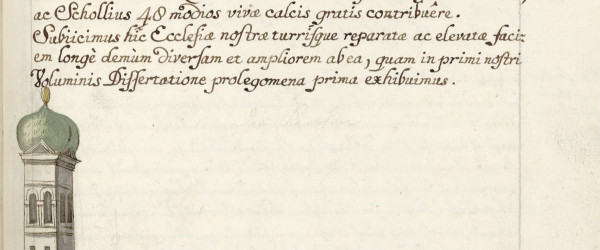 ac Schollius 48 modios vivæ calcis gratis contribuêre.
Subiicimus hîc Ecclesiæ nostræ turrisque reparatæ ac elevatæ faci=
em longè demùm diversam et ampliorem ab ea, quam in primi nostri
Voluminis Dissertatione prolegomena prima exhibuimus.